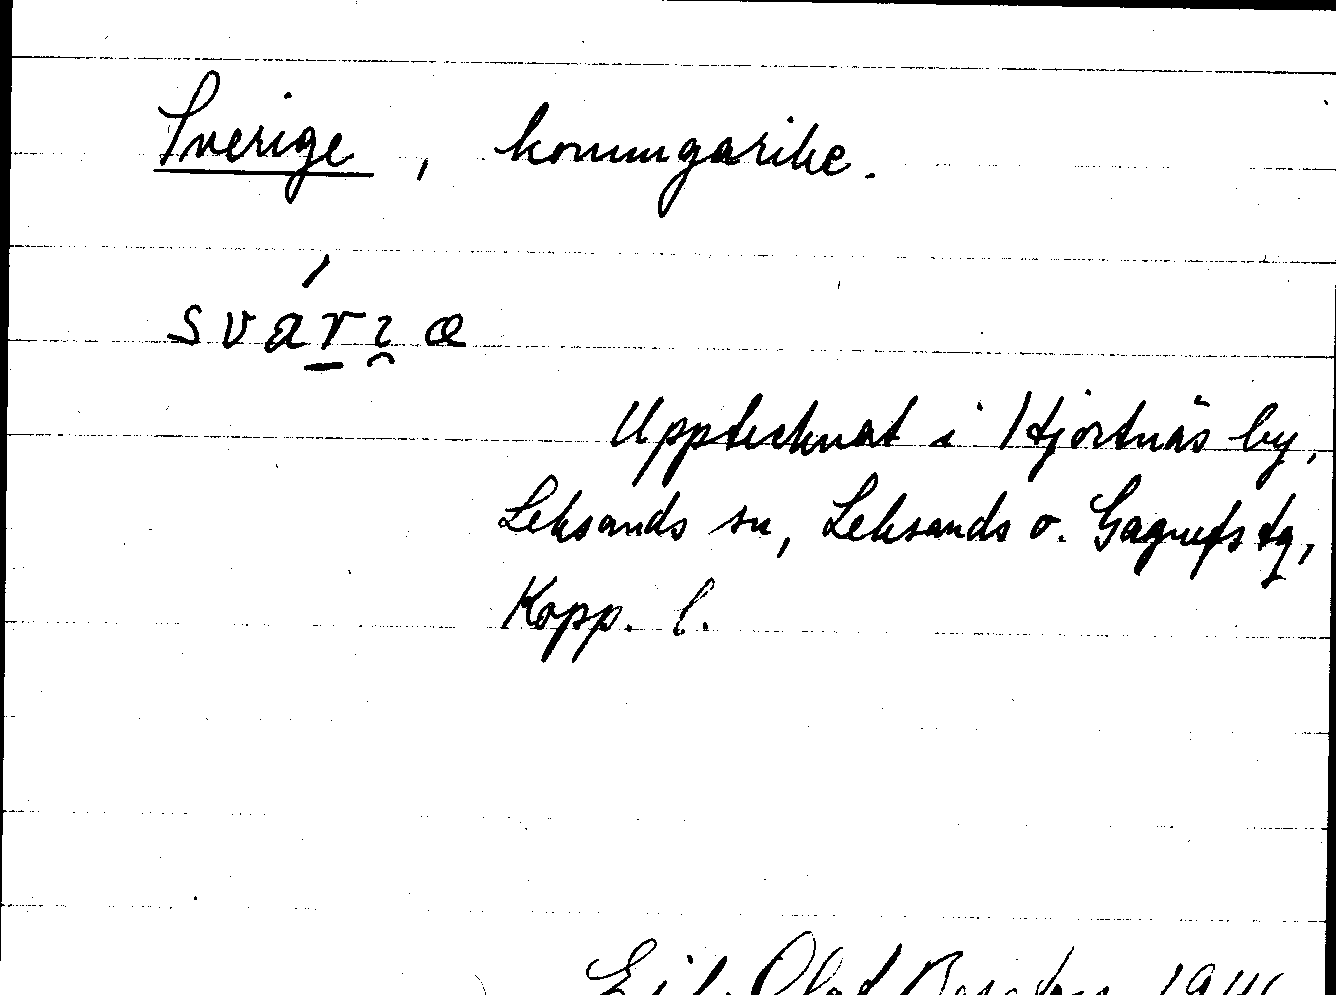 Sverige, konungarike.
svárɩ̯œ
Upptecknat i Hjortnäs by,
Leksands sn, Leksands o. Gagnefs tg,
Kopp. l.
Olof